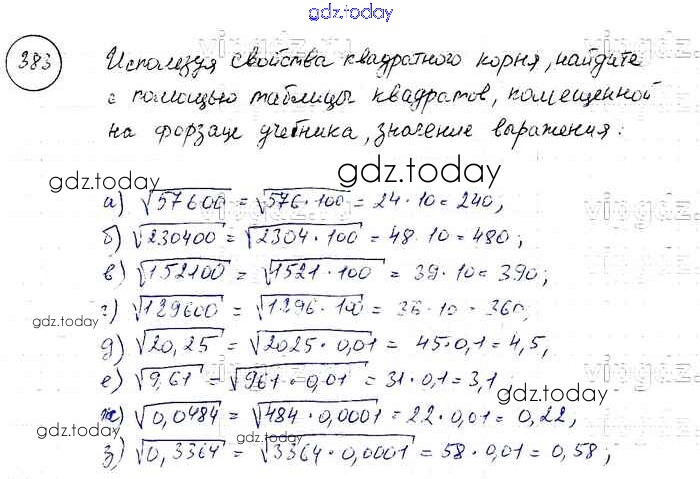 gdz.today
383
Используя свойства квадратного корня, найдите
с помощью таблицы квадратов, помещенной
на форзаце учебника, значение выражения:
gdz.today
gdz.today
а) √57600 = √576·100 = 24·10 = 240;
б) √230400 = √2304·100 = 48·10 = 480;
в) √152100 = √1521·100 = 39·10 = 390;
г) √129600 = √1296·100 = 36·10 = 360;
gdz.today
д) √20,25 = √2025·0,01 = 45·0,1 = 4,5,
е) √9,61 = √961·0,01 = 31·0,1 = 3,1
gdz.today
ж) √0,0484 = √484·0,0001 = 22·0,01 = 0,22,
gdz.today
з) √0,3364 = √3364·0,0001 = 58·0,01 = 0,58;
gdz.today